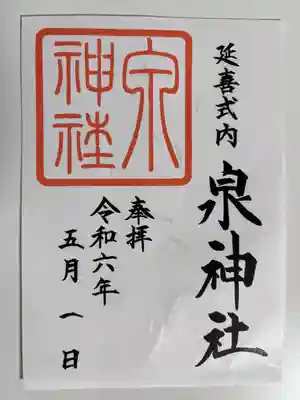 延喜式内
泉神社
奉拝
令和六年
五月一日
泉
神社